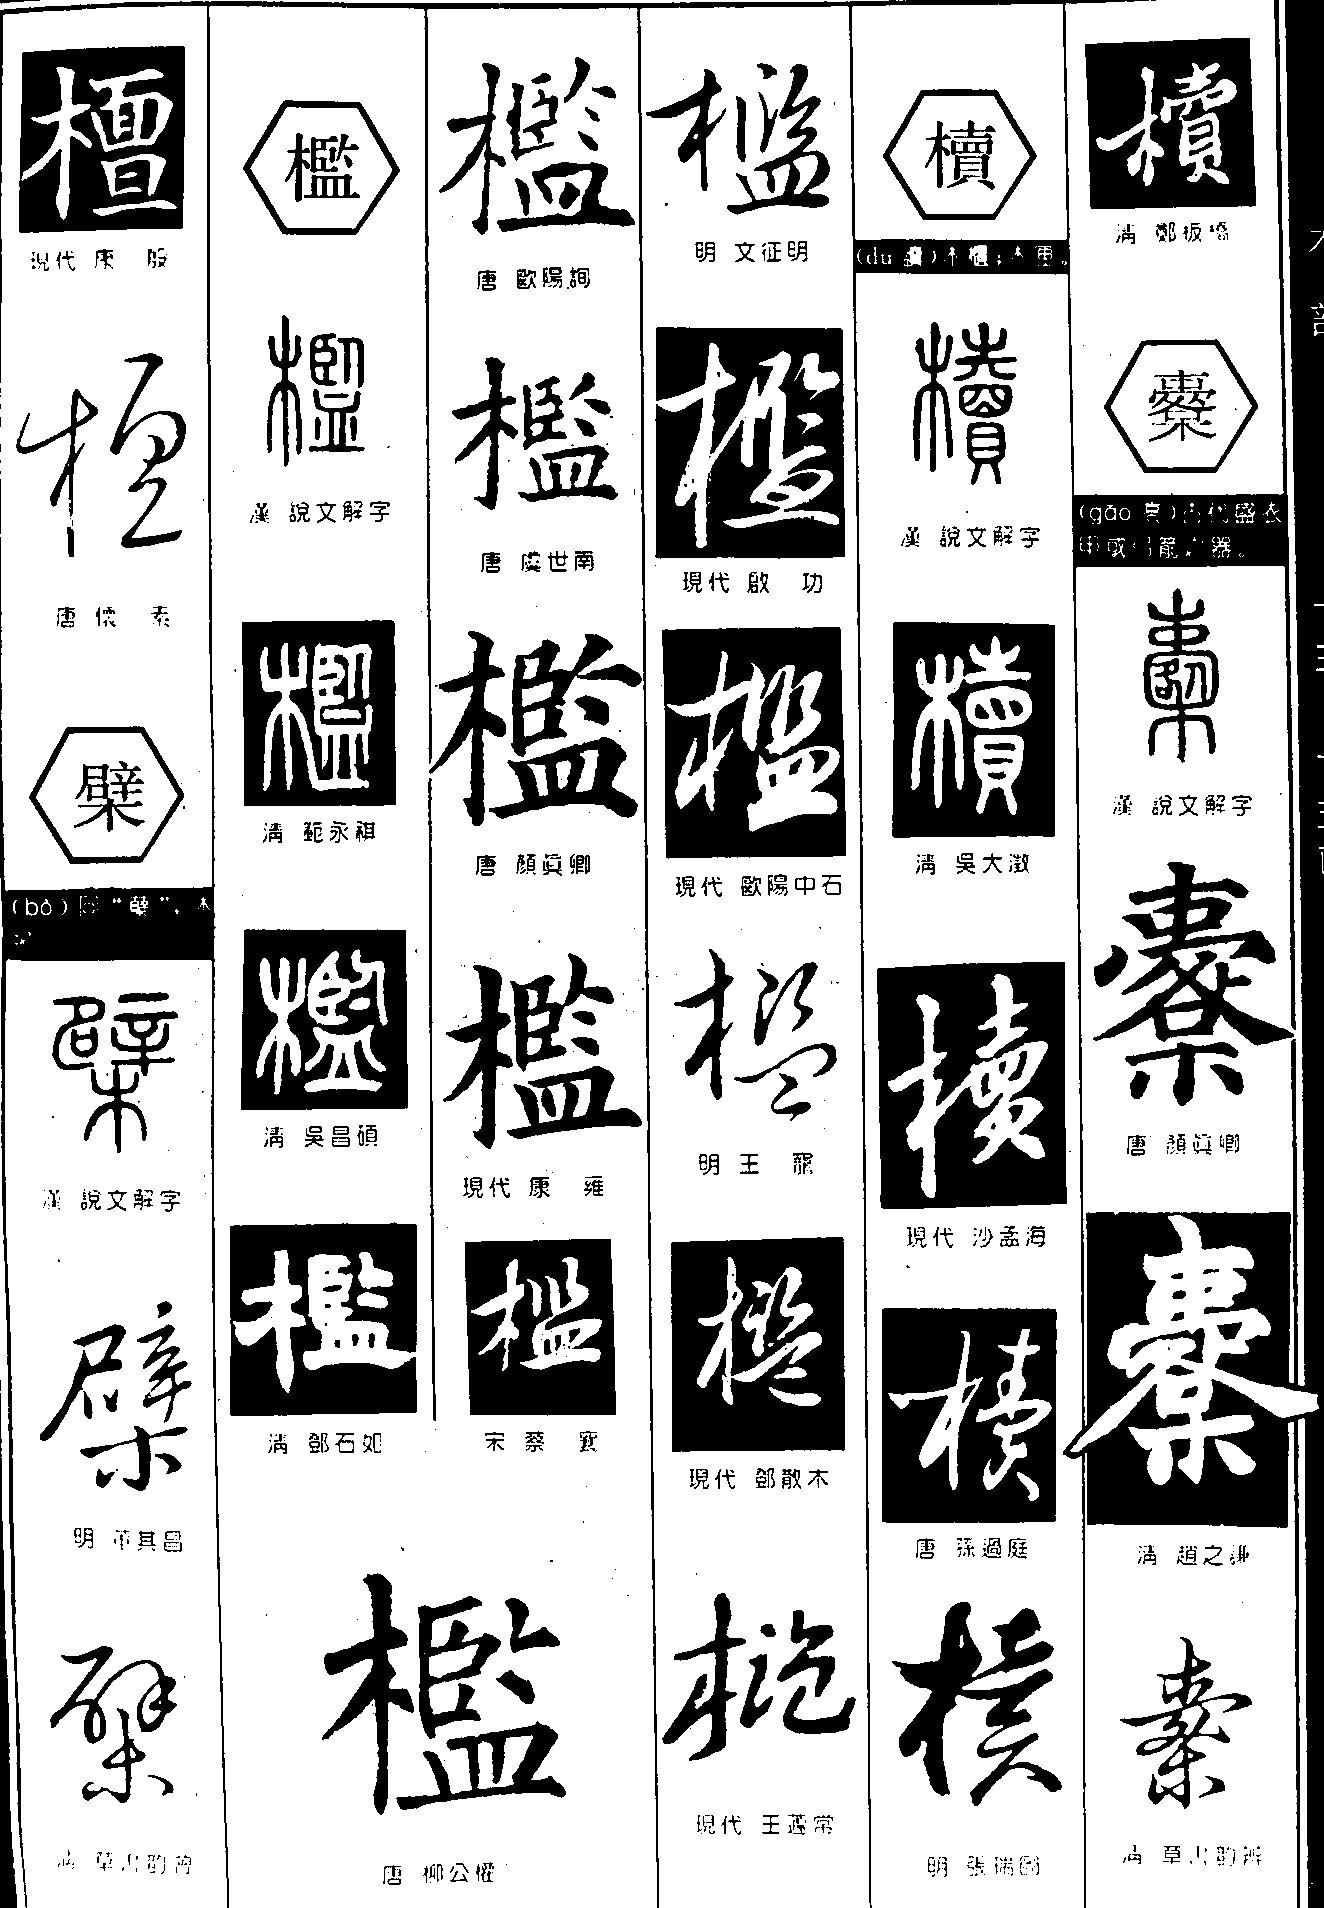 檀
現代 康 殷
檀
唐 懷 素
檗
(bò) 同“蘗”，木
檗
漢 說文解字
檗
明 董其昌
檗
清 草書韵辨
檻
檻
漢 說文解字
檻
清 範永祺
檻
清 吳昌碩
檻
清 鄧石如
檻
唐 歐陽詢
檻
唐 虞世南
檻
唐 顏眞卿
檻
現代 康 雍
檻
宋 蔡 襄
檻
唐 柳公權
檻
明 文征明
檻
現代 啟 功
檻
現代 歐陽中石
檻
明 王 寵
檻
現代 鄧散木
檻
現代 王蘧常
櫝
(du 讀) 木櫃；木匣。
櫝
漢 說文解字
櫝
清 吳大澂
櫝
現代 沙孟海
櫝
唐 孫過庭
櫝
明 張瑞圖
櫝
清 鄭板橋
櫜
(gāo 高) 古代盛衣
甲或弓箭之器。
櫜
漢 說文解字
櫜
唐 顏眞卿
櫜
清 趙之謙
櫜
清 草書韵辨
木部